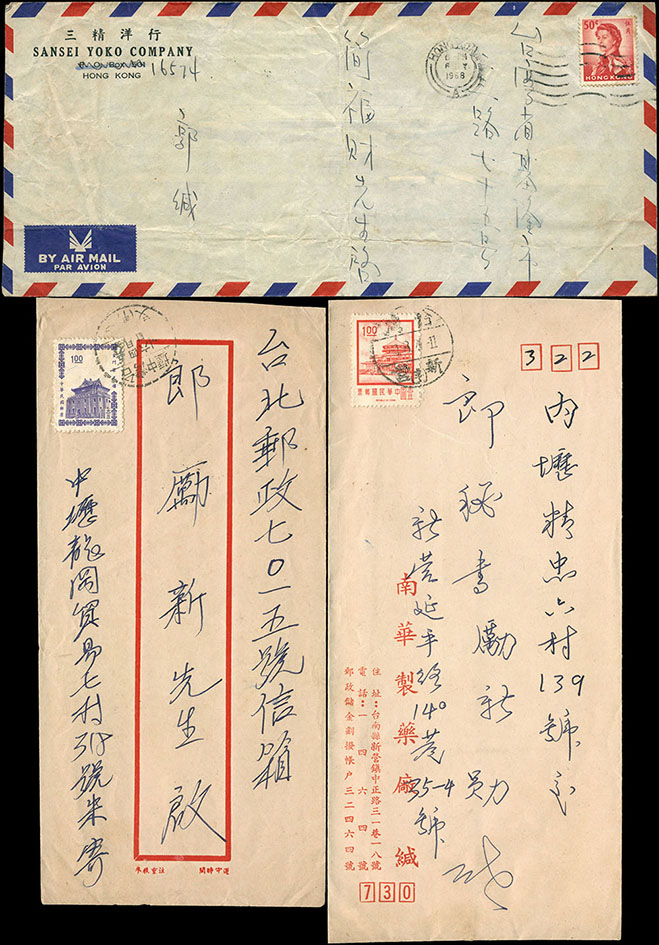 三精洋行
SANSEI YOKO COMPANY
HONG KONG
16574
50¢
HONG KONG
HONG KONG
1968
A
台灣省基隆市
路七十五号
簡福財先生啓
郭緘
BY AIR MAIL
PAR AVION
1.00
中華民國郵票
台北郵政七〇一五號信箱
郎勵新先生啟
中壢龍岡貿易七村
號朱寄
遵守時間 注重校本
1.00
中華民國郵票
322
內壢精忠六村139號之
郎秘書勵新勛
新營延平路140巷35-4號
南華製藥廠緘
住址：台南縣新營鎮中正路三一巷一八號
電話：一四六四號
郵政儲金劃撥帳戶三二四六四號
730